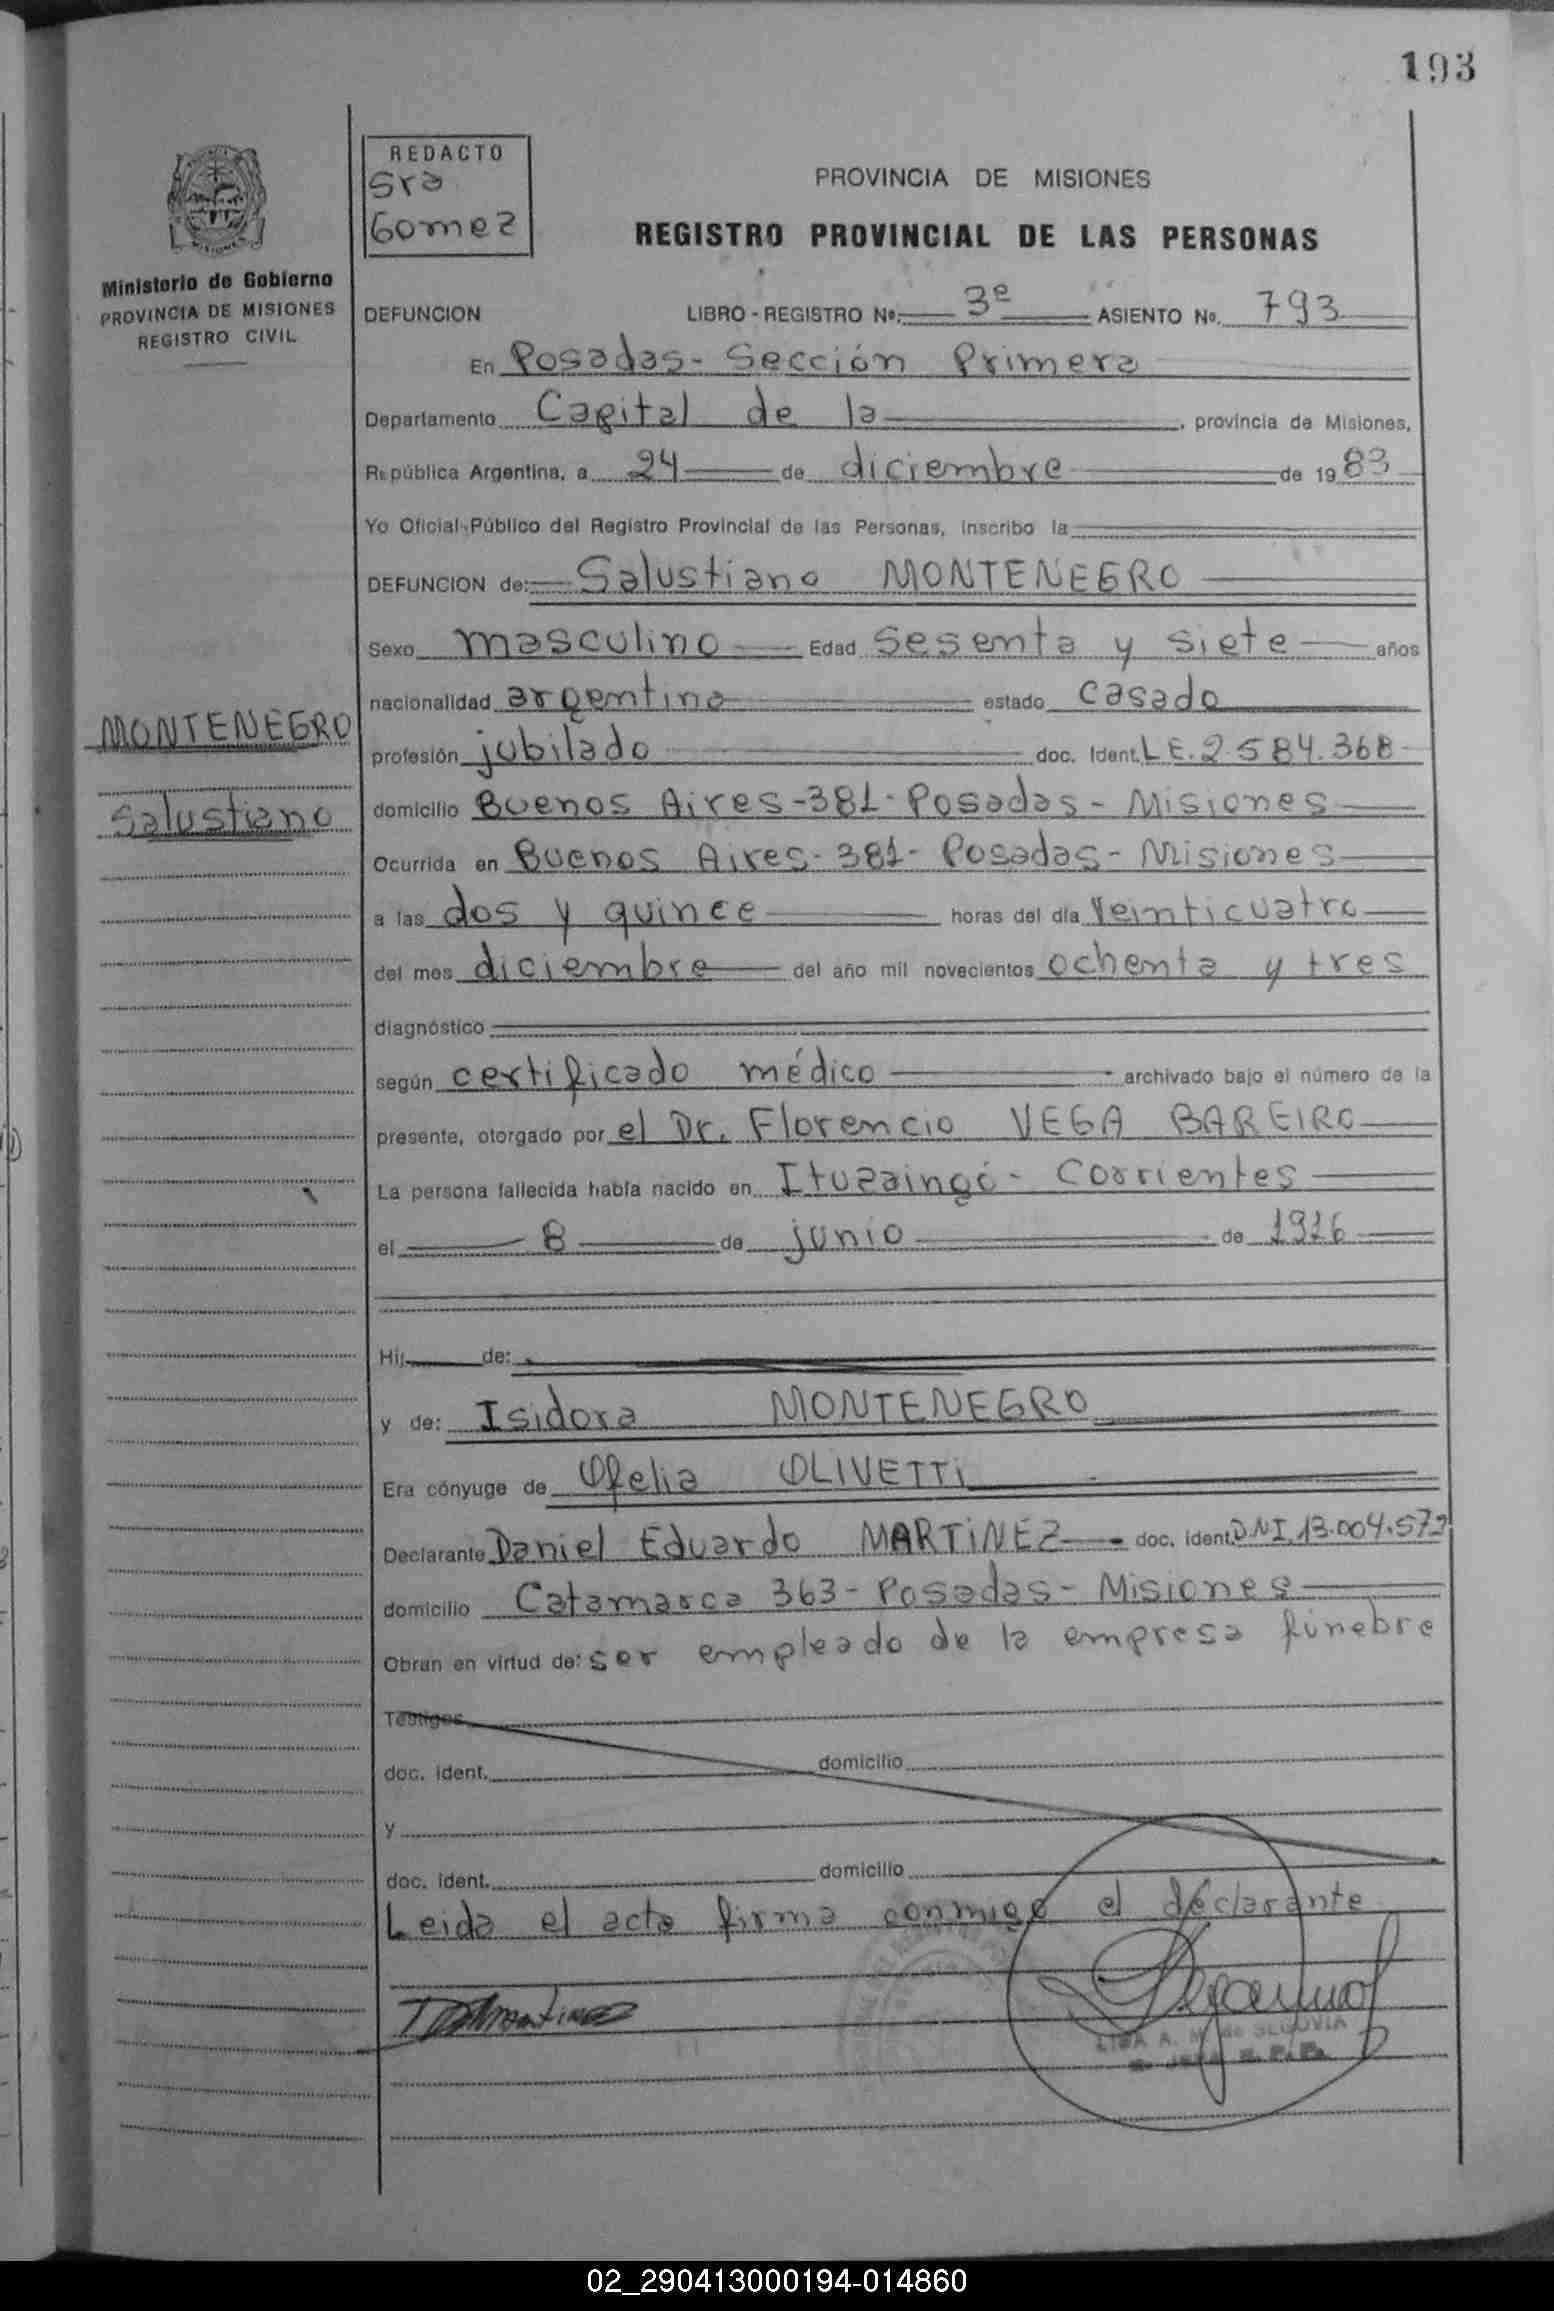 193
REDACTO
Sra
Gomez
PROVINCIA DE MISIONES
REGISTRO PROVINCIAL DE LAS PERSONAS
Ministerio de Gobierno
PROVINCIA DE MISIONES
REGISTRO CIVIL
DEFUNCION LIBRO - REGISTRO Nº. 3º ASIENTO Nº. 793
En Posadas - Sección Primera
Departamento Capital de la , provincia de Misiones,
República Argentina, a 24 de diciembre de 1983
Yo Oficial Público del Registro Provincial de las Personas, inscribo la
DEFUNCION de: Salustiano MONTENEGRO
Sexo masculino Edad Sesenta y siete años
nacionalidad argentina estado casado
MONTENEGRO
Salustiano
profesión jubilado doc. Ident. L.E. 2.584.368
domicilio Buenos Aires - 381 - Posadas - Misiones
Ocurrida en Buenos Aires - 381 - Posadas - Misiones
a las dos y quince horas del día veinticuatro
del mes diciembre del año mil novecientos ochenta y tres
diagnóstico
según certificado médico archivado bajo el número de la
presente, otorgado por el Dr. Florencio VEGA BAREIRO
La persona fallecida había nacido en Ituzaingó - Corrientes
el 8 de junio de 1916
Hij de:
y de: Isidora MONTENEGRO
Era cónyuge de Ofelia OLIVETTi
Declarante Daniel Eduardo MARTiNEZ doc. ident. DNI. 13.004.579
domicilio Catamarca 363 - Posadas - Misiones
Obran en virtud de: ser empleado de la empresa fúnebre
Testigos
doc. ident. domicilio
y
doc. ident. domicilio
Leida el acta firma conmigo el declarante
A. M. de SEGOVIA
02_290413000194-014860